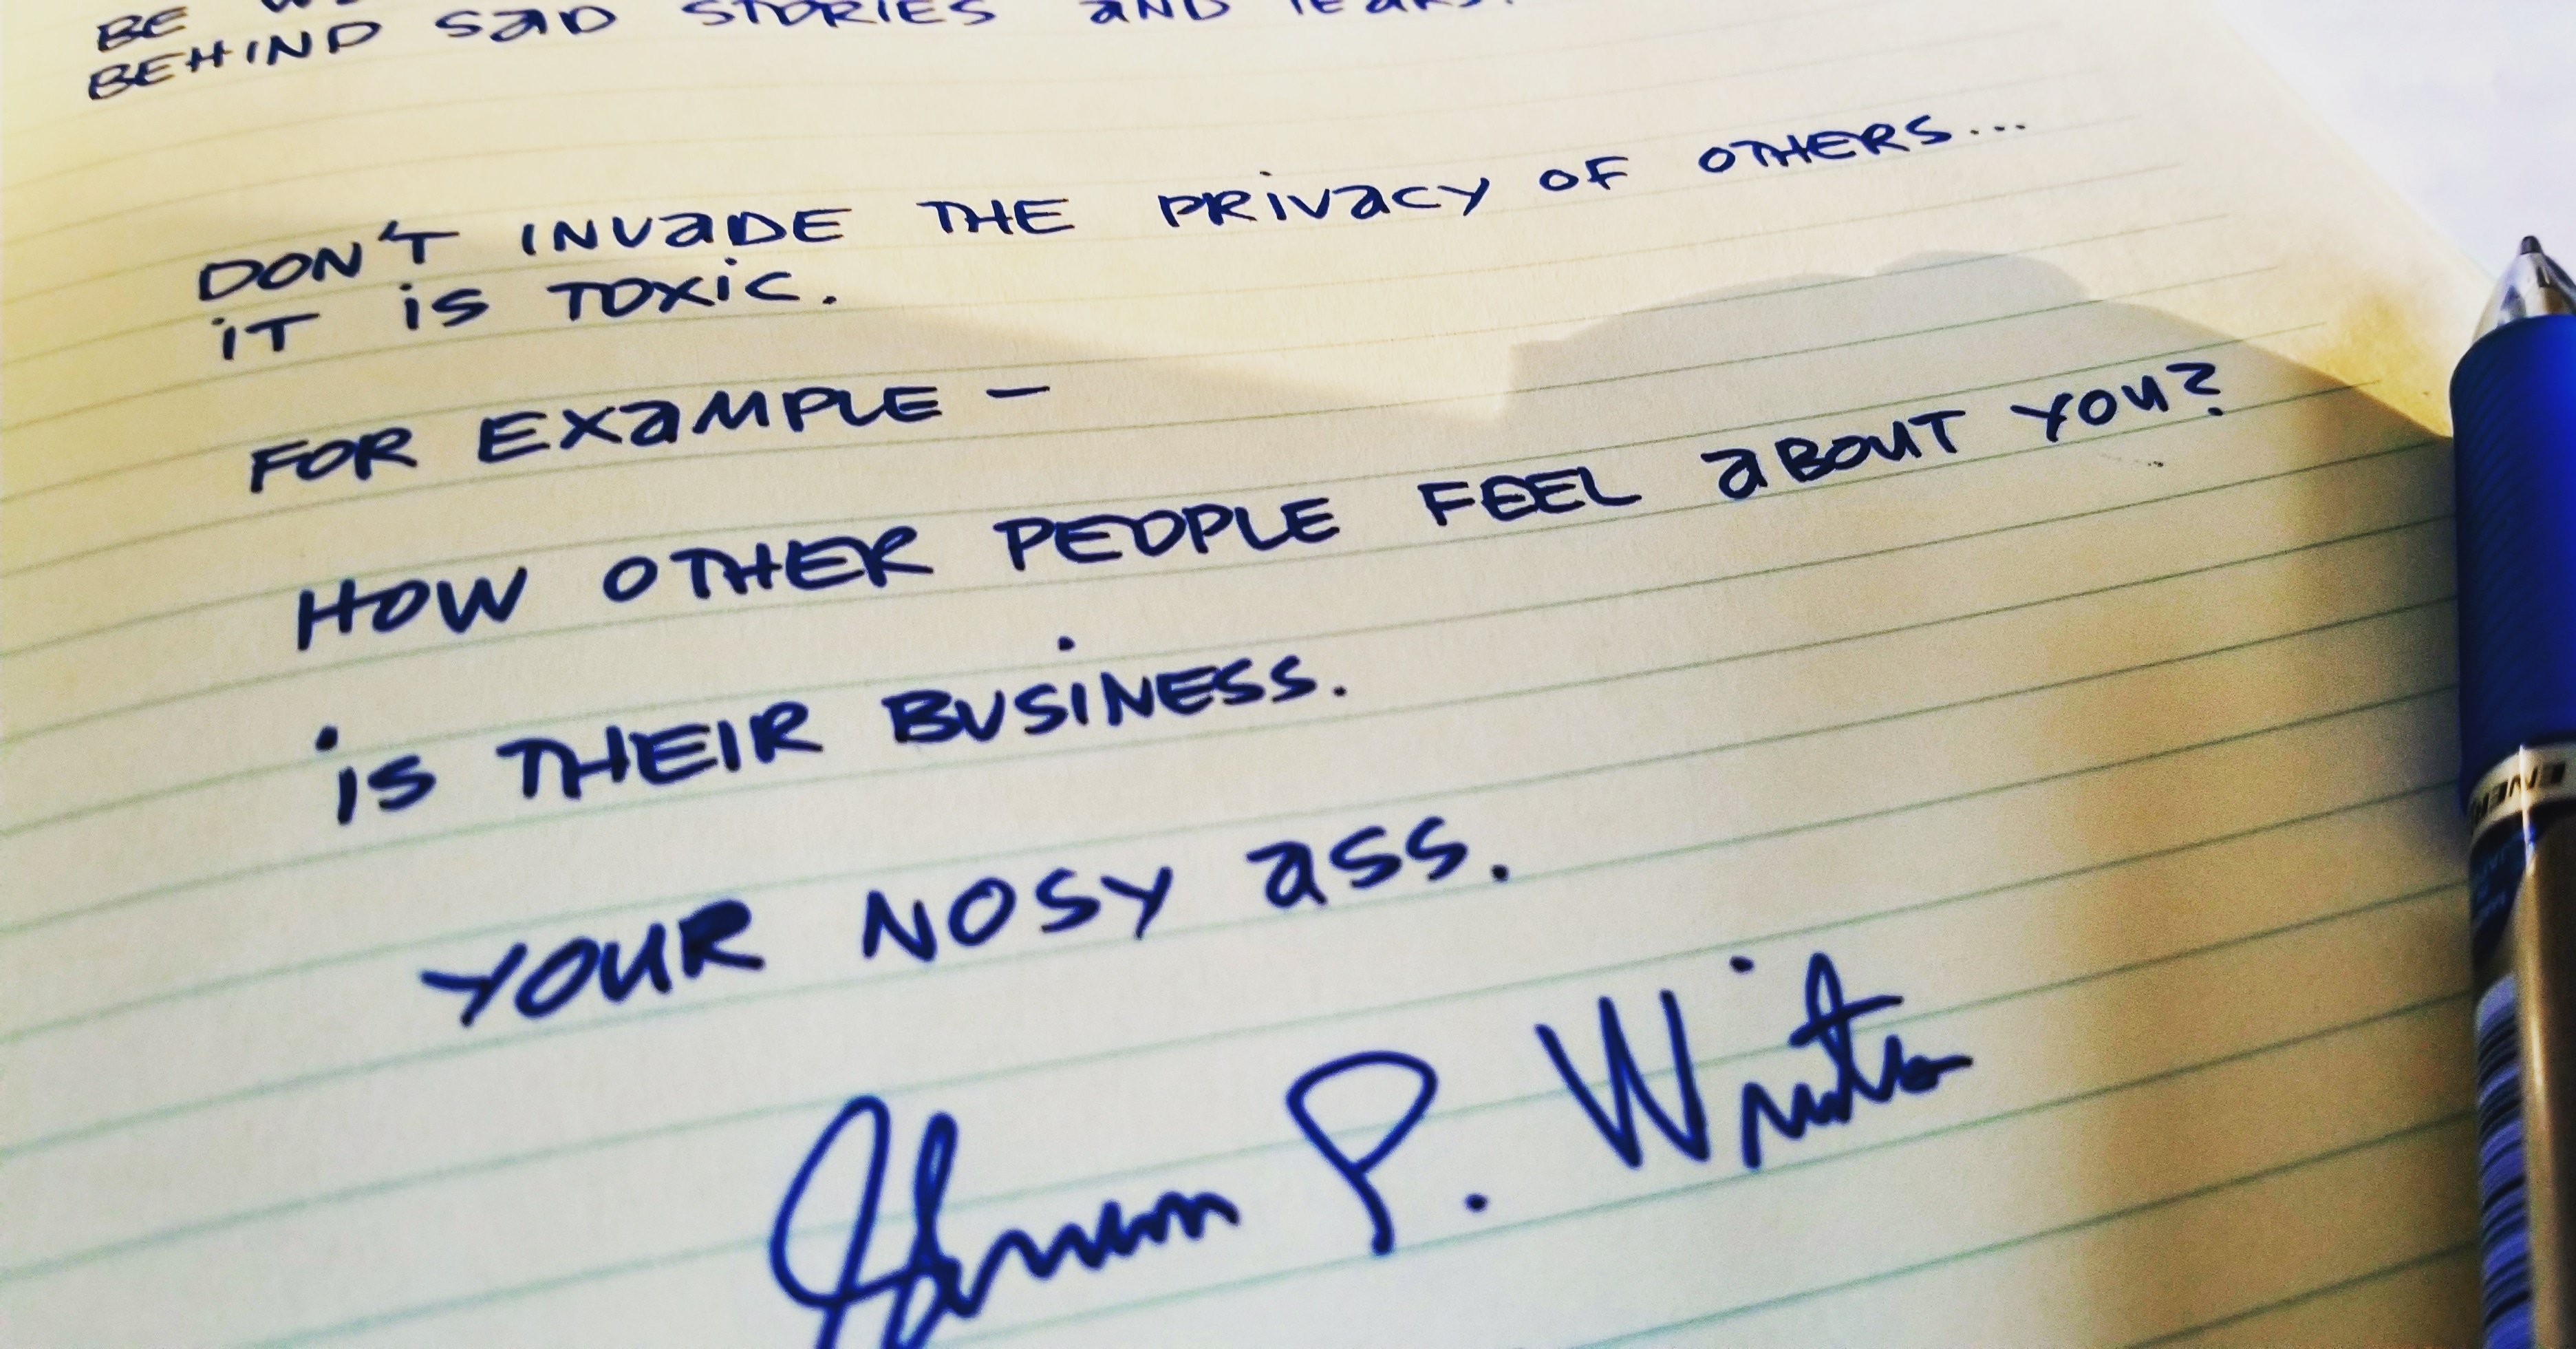 BE
BEHIND SAD STORIES AND TEARS.
DON'T INVADE THE PRIVACY OF OTHERS...
IT IS TOXIC.
FOR EXAMPLE —
HOW OTHER PEOPLE FEEL ABOUT YOU?
IS THEIR BUSINESS.
YOUR NOSY ASS.
P.